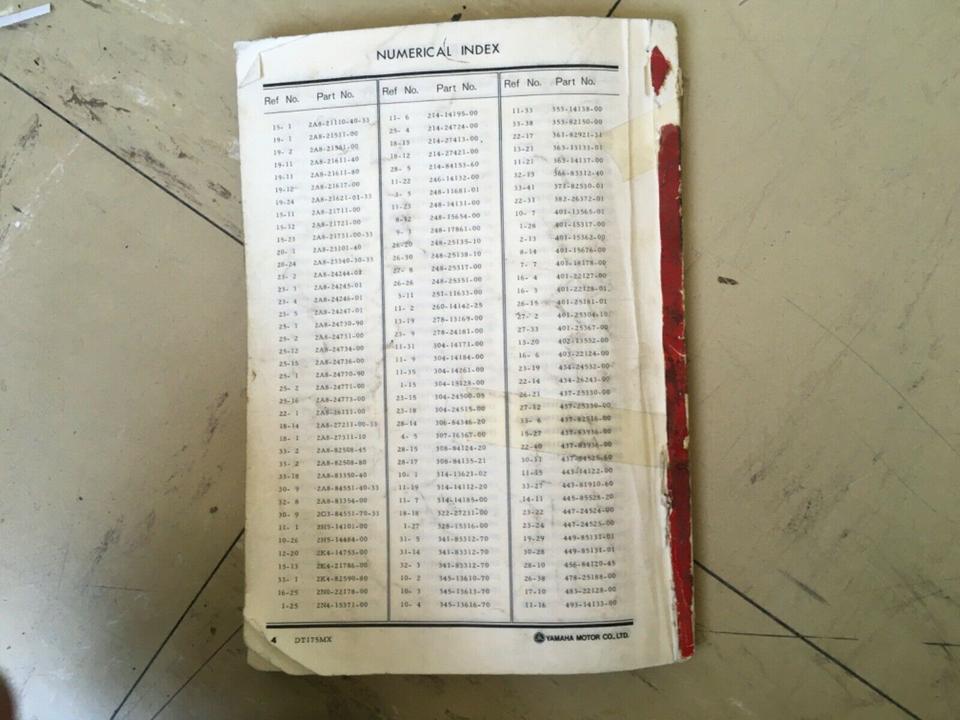 NUMERICAL INDEX
Ref No. Part No.
15- 1 2A8-21110-40-33
19- 1 2A8-21511-00
19- 2 2A8-21561-00
19-11 2A8-21611-40
19-11 2A8-21611-80
19-12 2A8-21617-00
19-24 2A8-21621-01-33
15-11 2A8-21711-00
15-12 2A8-21721-00
15-23 2A8-21731-00-33
20- 1 2A8-23101-40
20-24 2A8-23340-30-33
23- 2 2A8-24244-01
23- 3 2A8-24245-01
23- 4 2A8-24246-01
23- 5 2A8-24247-01
25- 1 2A8-24730-90
25- 2 2A8-24731-00
25-12 2A8-24734-00
25-15 2A8-24736-00
25- 1 2A8-24770-90
25- 2 2A8-24771-00
25-16 2A8-24773-00
22- 1 2A8-26111-00
18-14 2A8-27211-00-33
18- 1 2A8-27311-10
33- 2 2A8-82508-45
33- 2 2A8-82508-80
33-18 2A8-83350-40
30- 9 2A8-84551-40-33
32- 8 2A8-83354-00
30- 9 2G3-84551-70-33
11- 1 2H5-14101-00
10-26 2H5-14484-00
12-20 2K4-14753-00
15-13 2K4-21786-00
33- 1 2K4-82590-80
16-25 2N0-22178-00
1-25 2N4-15371-00
Ref No. Part No.
11- 6 214-14195-00
25- 4 214-24724-00
18-13 214-27413-00
18-12 214-27421-00
28- 5 214-84153-60
11-22 246-14132-00
3- 5 248-11681-01
11-23 248-14131-00
8-12 248-15654-00
9- 3 248-17861-00
26-20 248-25135-10
26-30 248-25138-10
27- 8 248-25317-00
26-26 248-25351-00
3-11 251-11633-00
11- 2 260-14142-25
13-19 278-13169-00
23- 9 278-24181-00
11-31 304-14171-00
11- 9 304-14184-00
11-35 304-14261-00
1-15 304-15128-00
23-15 304-24500-05
23-18 304-24515-00
28-14 306-84346-20
4- 5 307-16367-00
28-15 308-84124-20
28-17 308-84135-21
10- 1 314-13621-02
11-19 314-14112-20
11- 7 314-14185-00
18-18 322-27231-00
1-27 328-15316-00
31- 5 341-83312-70
31-14 341-83312-70
32- 3 341-83312-70
10- 2 345-13610-70
10- 3 345-13613-70
10- 4 345-13616-70
Ref No. Part No.
11-33 353-14138-00
33-38 353-82150-00
22-17 361-82921-31
13-21 363-13131-01
11-21 363-14137-00
32-13 366-83312-40
33-41 371-82530-01
22-31 382-26372-01
10- 7 401-13565-01
1-28 401-15317-00
2-13 401-15362-00
8-14 401-15676-00
7- 7 401-18178-00
16- 4 401-22127-00
16- 3 401-22128-01
26-15 401-25181-01
27- 2 401-25304-10
27-33 401-25367-00
13-20 402-13552-00
16- 6 403-22124-00
23-19 434-24532-00
22-14 434-26243-00
26-21 437-25330-00
27-12 437-25330-00
33- 6 437-82516-00
15-27 437-83936-00
22-40 437-83936-00
30-31 437-84525-60
11-15 443-14122-00
33-27 443-81910-60
14-11 445-85528-20
23-22 447-24524-00
23-24 447-24525-00
19-29 449-85131-01
30-28 449-85131-01
28-10 456-84120-45
26-38 478-25188-00
17-10 483-22128-00
11-16 493-14133-00
4 DT175MX
YAMAHA MOTOR CO., LTD.